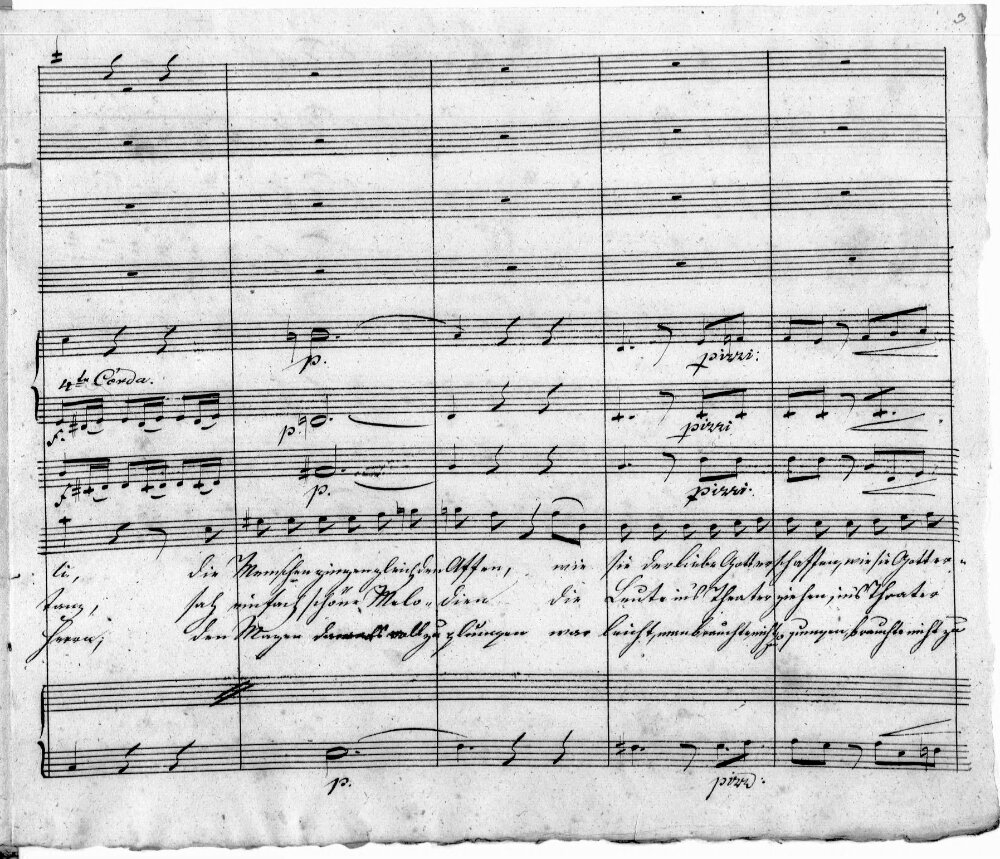 3
4ta Corda.
f.
p.
p.
f
p.
pizzi:
pizzi
pizzi:
li, die Menschen gingen gleich den Affen, wie sie der liebe Gott erschaffen, wie sie Gott er-
tanz, sah einfach schöne Melo-dien die Leute ins Theater ziehen, ins Theater
Herrn, den Magen voll zu war leicht, man brauchte nicht zu pumpen, brauchte nicht zu
p.
pizzi: